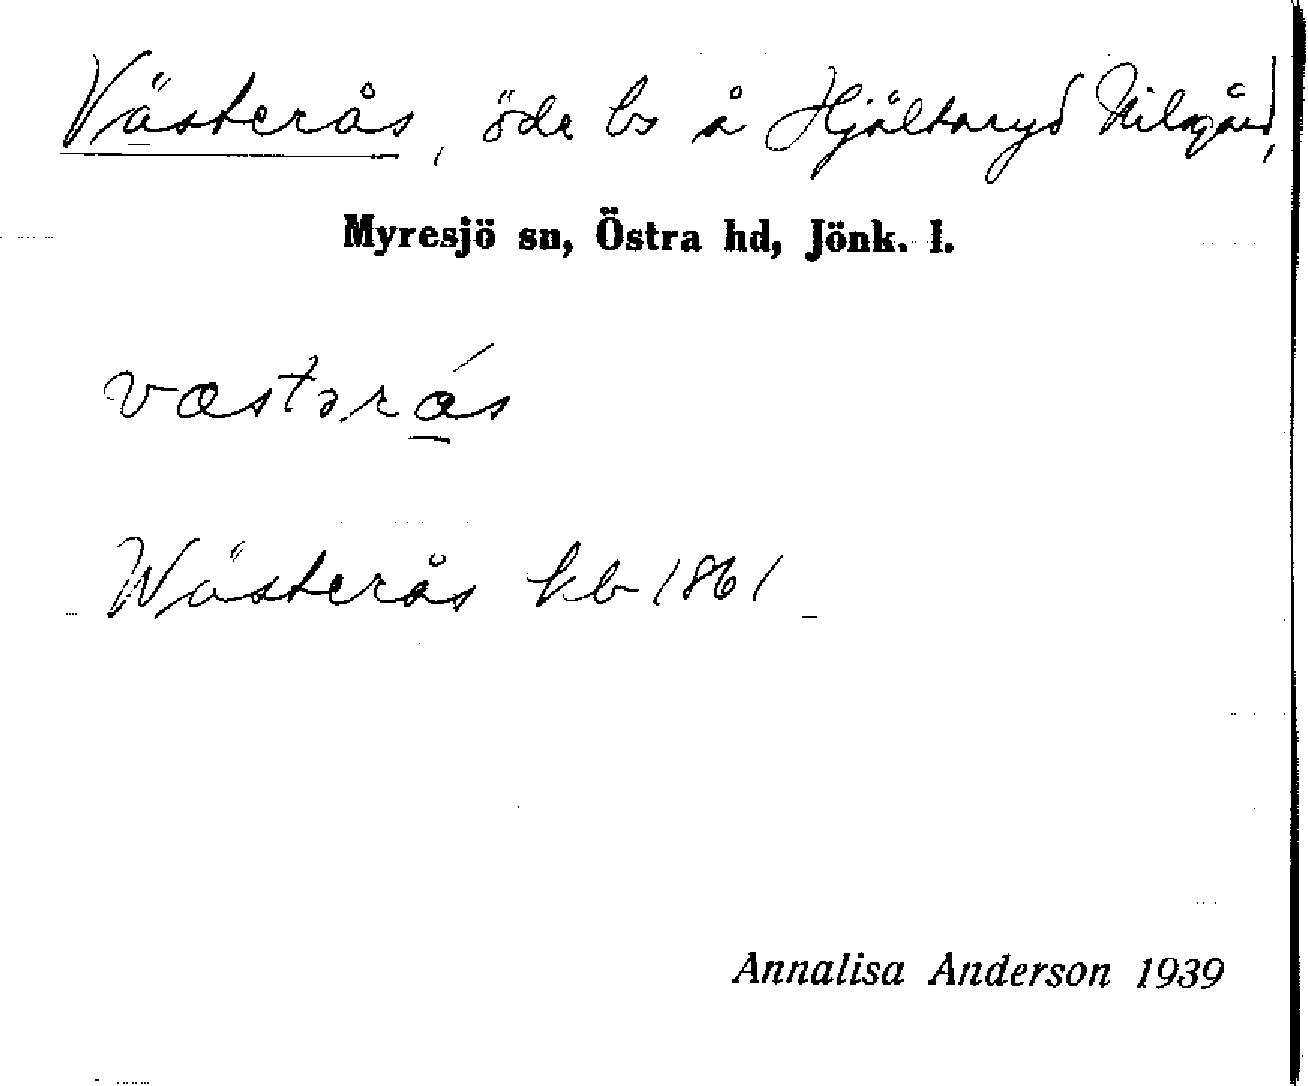 Västerås, öde bs å Hjältaryd Nilsgård,
Myresjö sn, Östra hd, Jönk. l.
væstərás
Wästerås kb 1861
Annalisa Anderson 1939